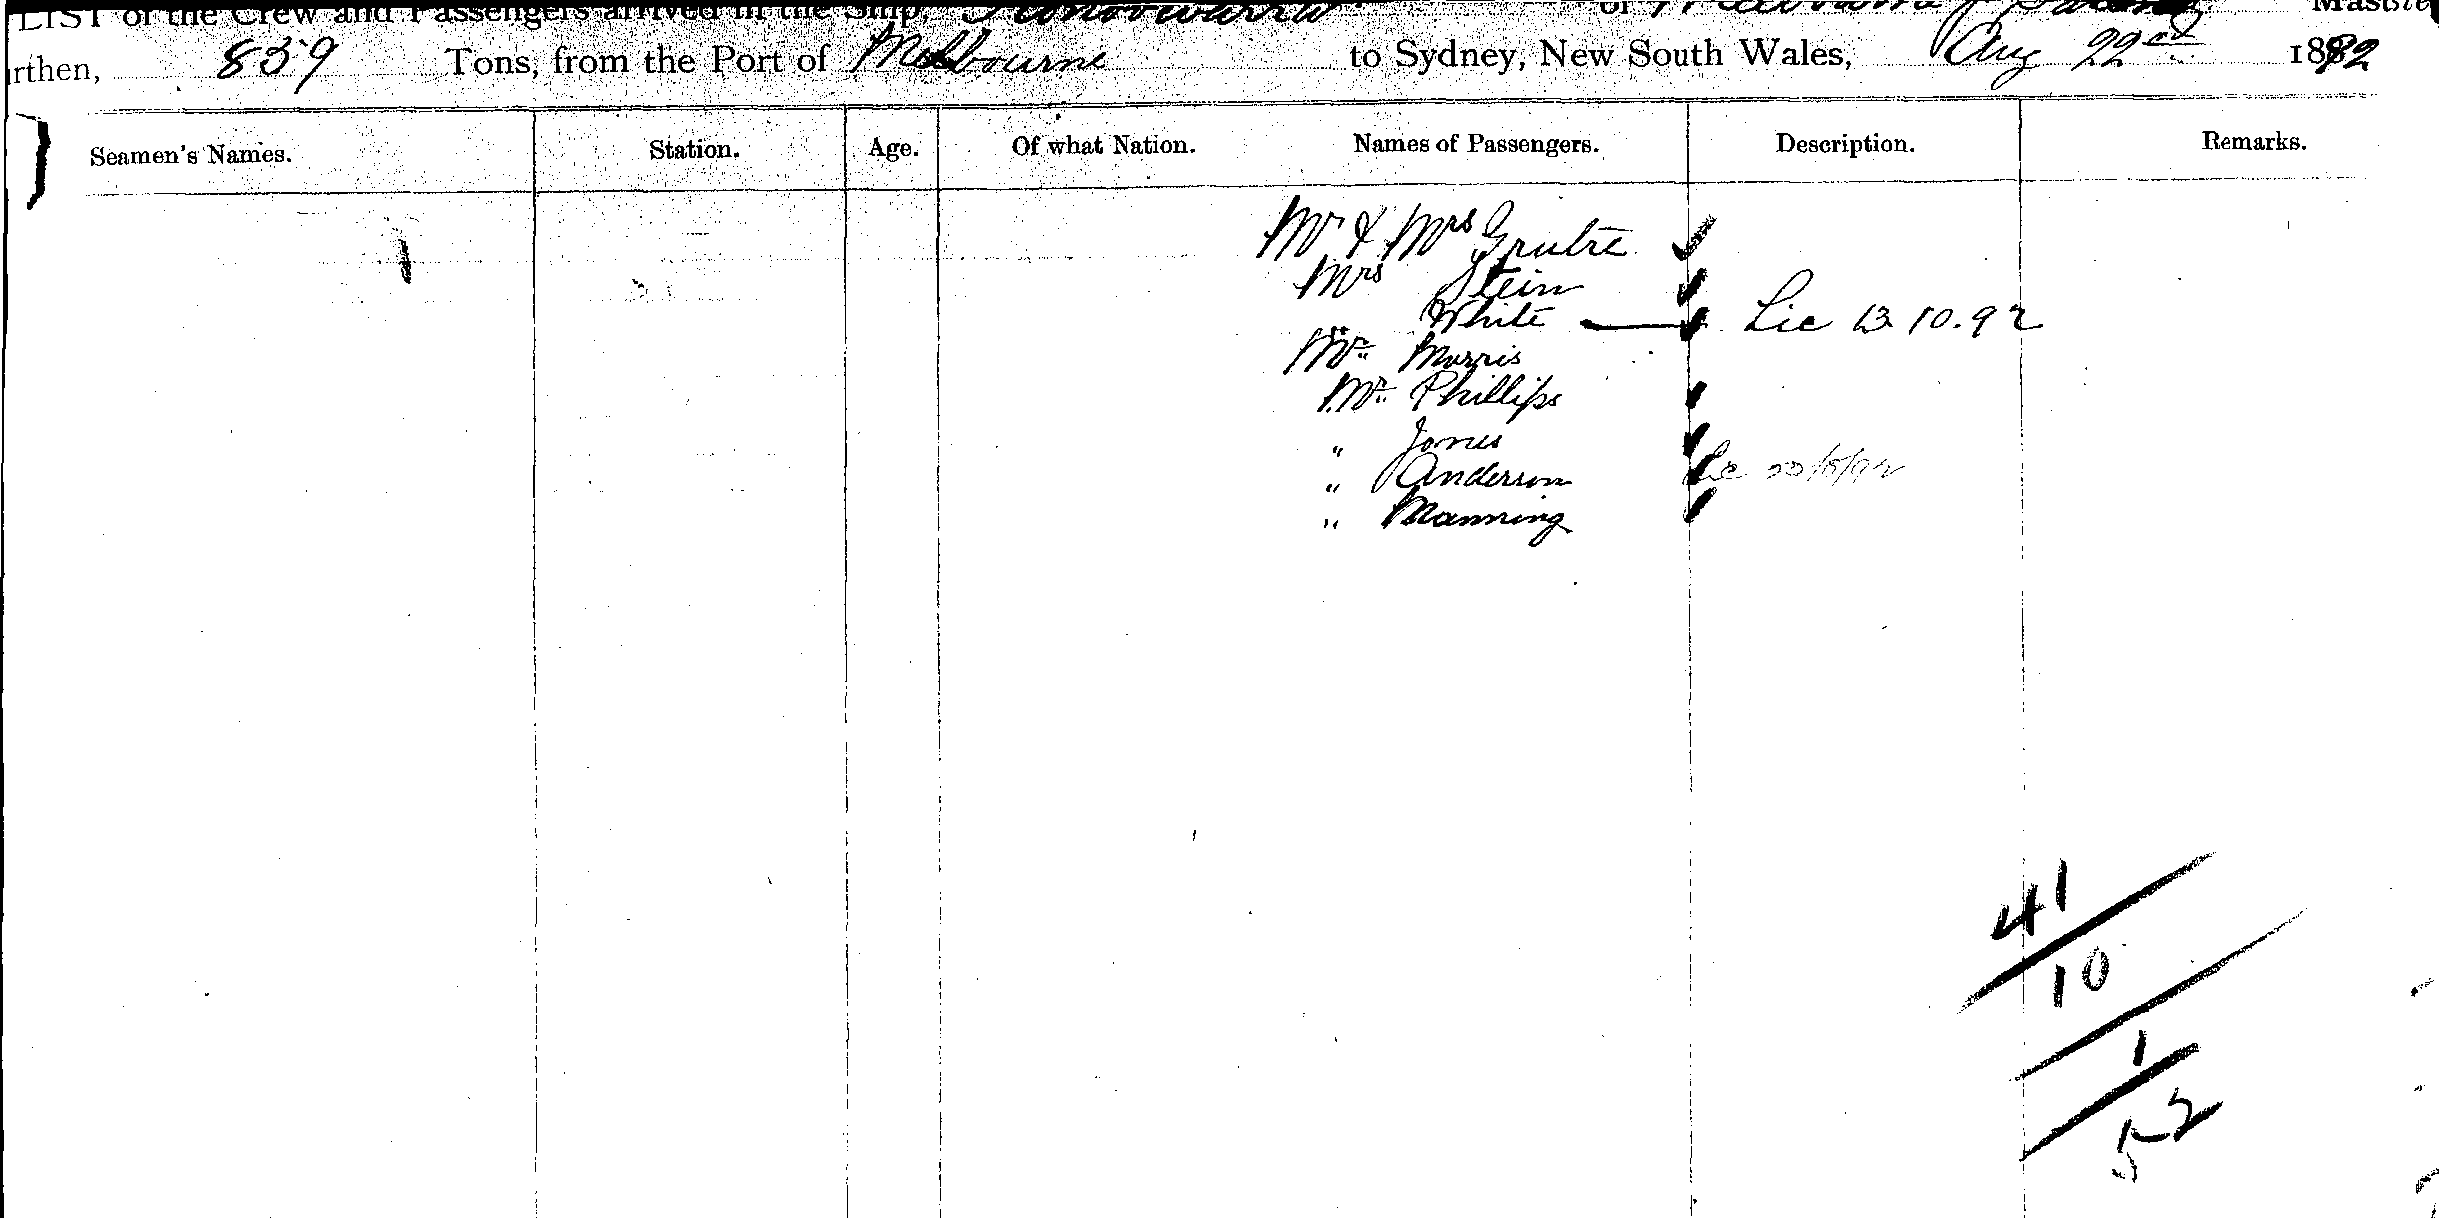 LIST of the Crew and Passengers arrived in the Ship, of Master
rthen, 859 Tons, from the Port of Melbourne to Sydney, New South Wales, Aug 22nd 1892
Seamen's Names. Station. Age. Of what Nation. Names of Passengers. Description. Remarks.
Mr & Mrs Grube
Mrs Stein
" White Lic 13 10.92
Mr Morris
Mr Phillips
" Jones
" Anderson Lic
" Manning
41
10
1
52